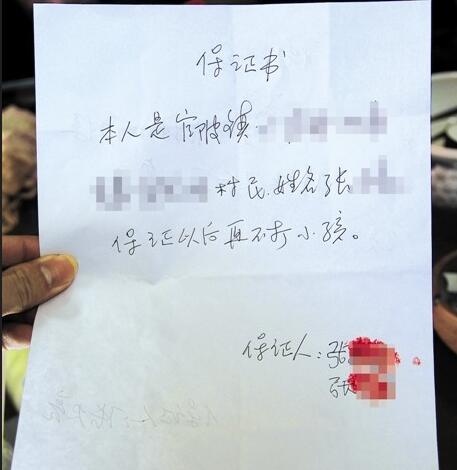 保证书
本人是官陂镇
村民.姓名张
保证以后再不打小孩。
保证人:张
张